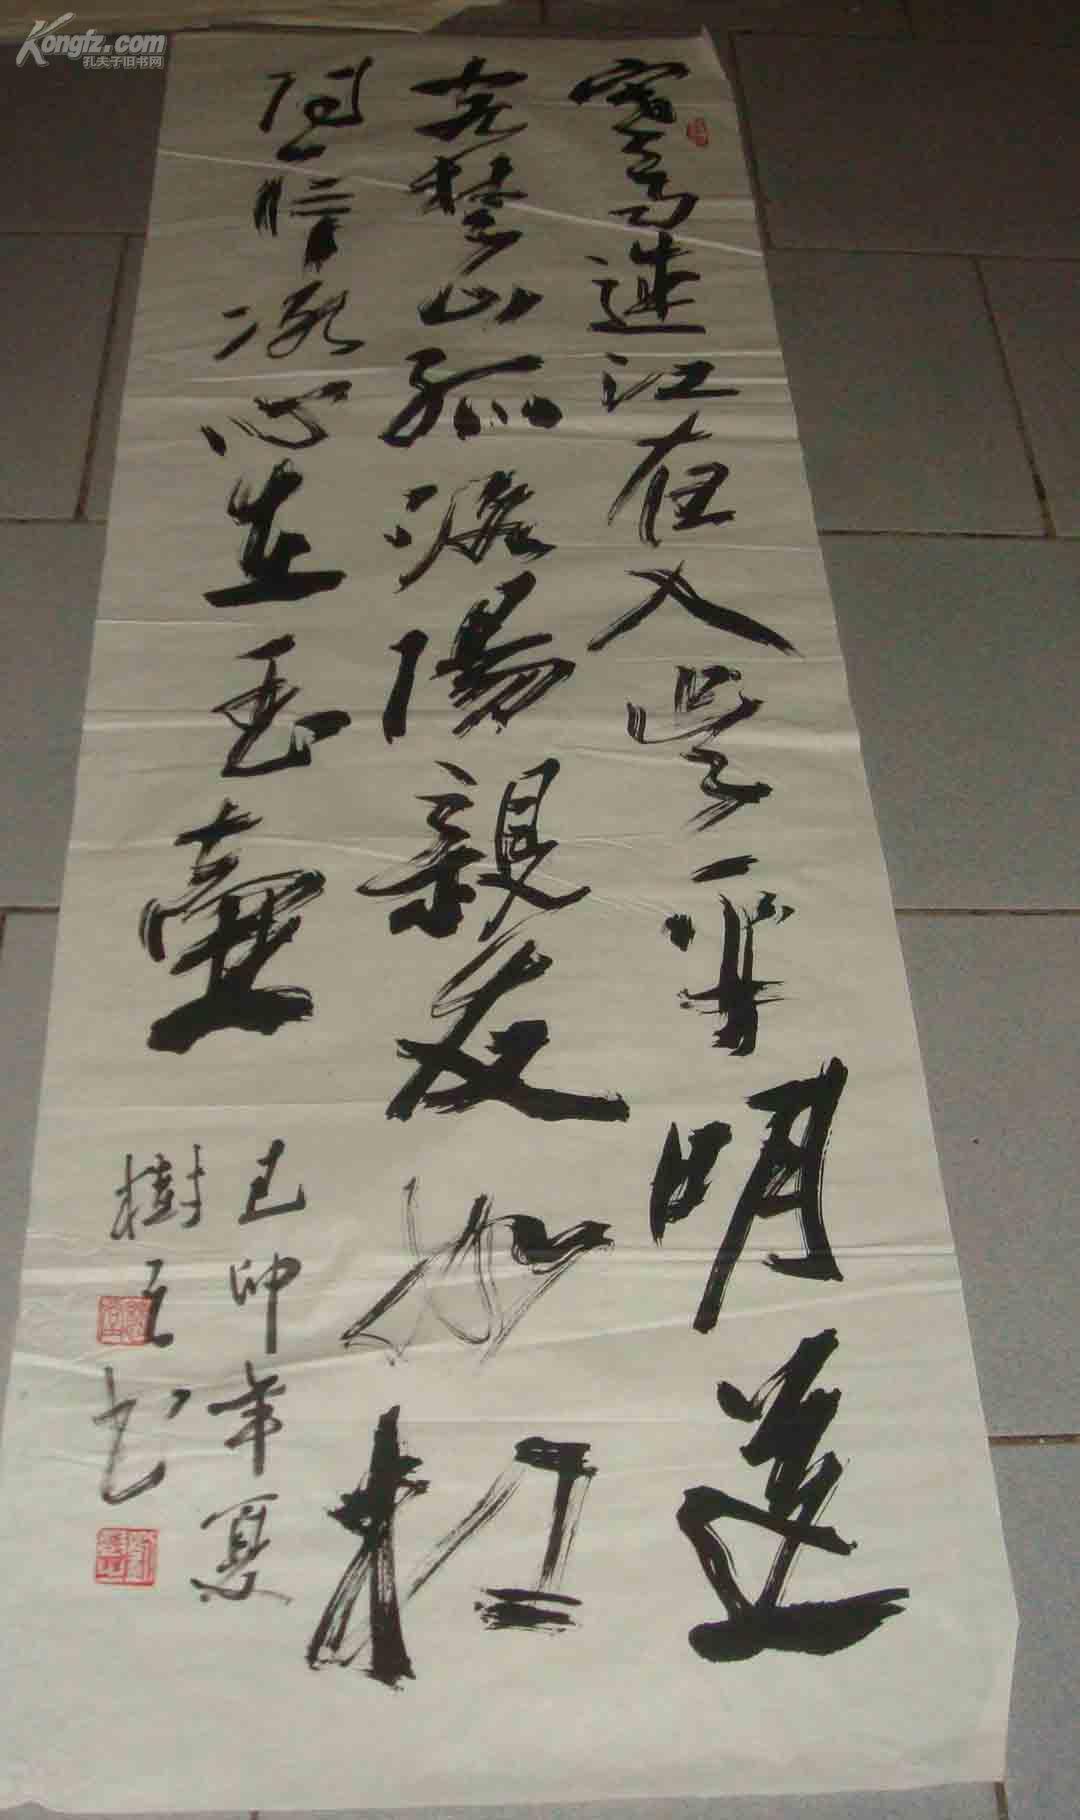 Kongfz.com
孔夫子旧书网
寒雨連江夜入吴平明送
客楚山孤洛陽親友如相
问一片冰心在玉壺
己卯年夏
樹之书